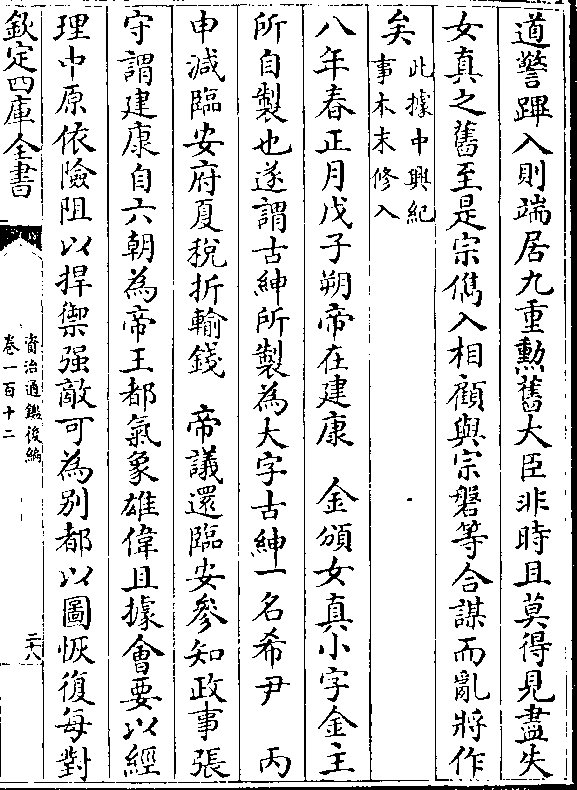 道警蹕入則端居九重勲舊大臣非時且莫得見盡失
女真之舊至是宗儁入相顧與宗磐等合謀而亂將作
矣此據中興紀
事本末修入
八年春正月戊子朔帝在建康　金頒女真小字金主
所自製也遂謂古紳所製為大字古紳一名希尹　丙
申減臨安府夏稅折輸錢　帝議還臨安參知政事張
守謂建康自六朝為帝王都氣象雄偉且據會要以經
理中原依險阻以捍禦强敵可為别都以圖恢復每對
欽定四庫全書
資治通鑑後編
卷一百十二
二十八